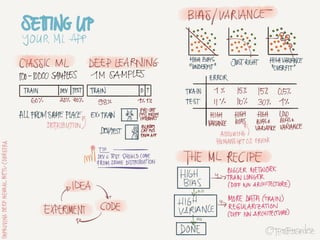 SETTING UP
YOUR ML APP
CLASSIC ML
100-10000 SAMPLES
TRAIN DEV TEST
60% 20% 20%
ALL FROM SAME PLACE
DISTRIBUTION
DEEP LEARNING
1M SAMPLES
TRAIN D T
98% 1% 1%
EX: TRAIN
DEV/TEST
TIP
DEV & TEST SHOULD COME
FROM SAME DISTRIBUTION
IDEA
CODE
EXPERIMENT
BIAS/VARIANCE
HIGH BIAS
"UNDERFIT"
JUST RIGHT
HIGH VARIANCE
"OVERFIT"
ERROR
TRAIN 1% 15% 15% 0.5%
TEST 11% 16% 30% 1%
HIGH VARIANCE
HIGH BIAS
HIGH BIAS & VARIANCE
LOW BIAS & VARIANCE
ASSUMING
HUMANS GET 0% ERROR
THE ML RECIPE
HIGH BIAS
BIGGER NETWORK
TRAIN LONGER
(DIFF NN ARCHITECTURE)
HIGH VARIANCE
MORE DATA (TRAIN)
REGULARIZATION
(DIFF NN ARCHITECTURE)
DONE